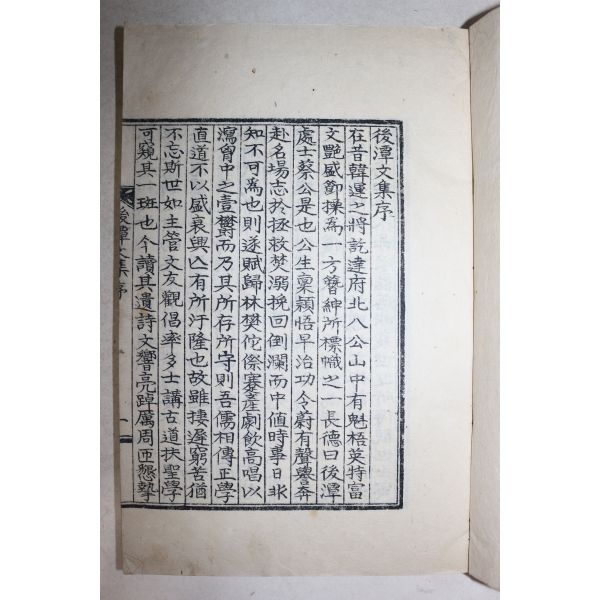 後潭文集序
在昔韓運之將訖達府北八公山中有魁梧英特富
文艷盛節操爲一方簪紳所標幟之一長德曰後潭
處士蔡公是也公生稟穎悟早治功令蔚有聲譽奔
赴名場志於拯救焚溺挽回倒瀾而中値時事日非
知不可爲也則遂賦歸林樊侘傺蹇產劇飮高唱以
瀉胷中之壹欝而乃其所存所守則吾儒相傳正學
直道不以盛衰興亾有所汙隆也故雖捿遲窮苦猶
不忘斯世如主管文友觀倡率多士講古道扶聖學
可窺其一班也今讀其遺詩文響亮踔厲周匝懇摯
後潭文集序 一